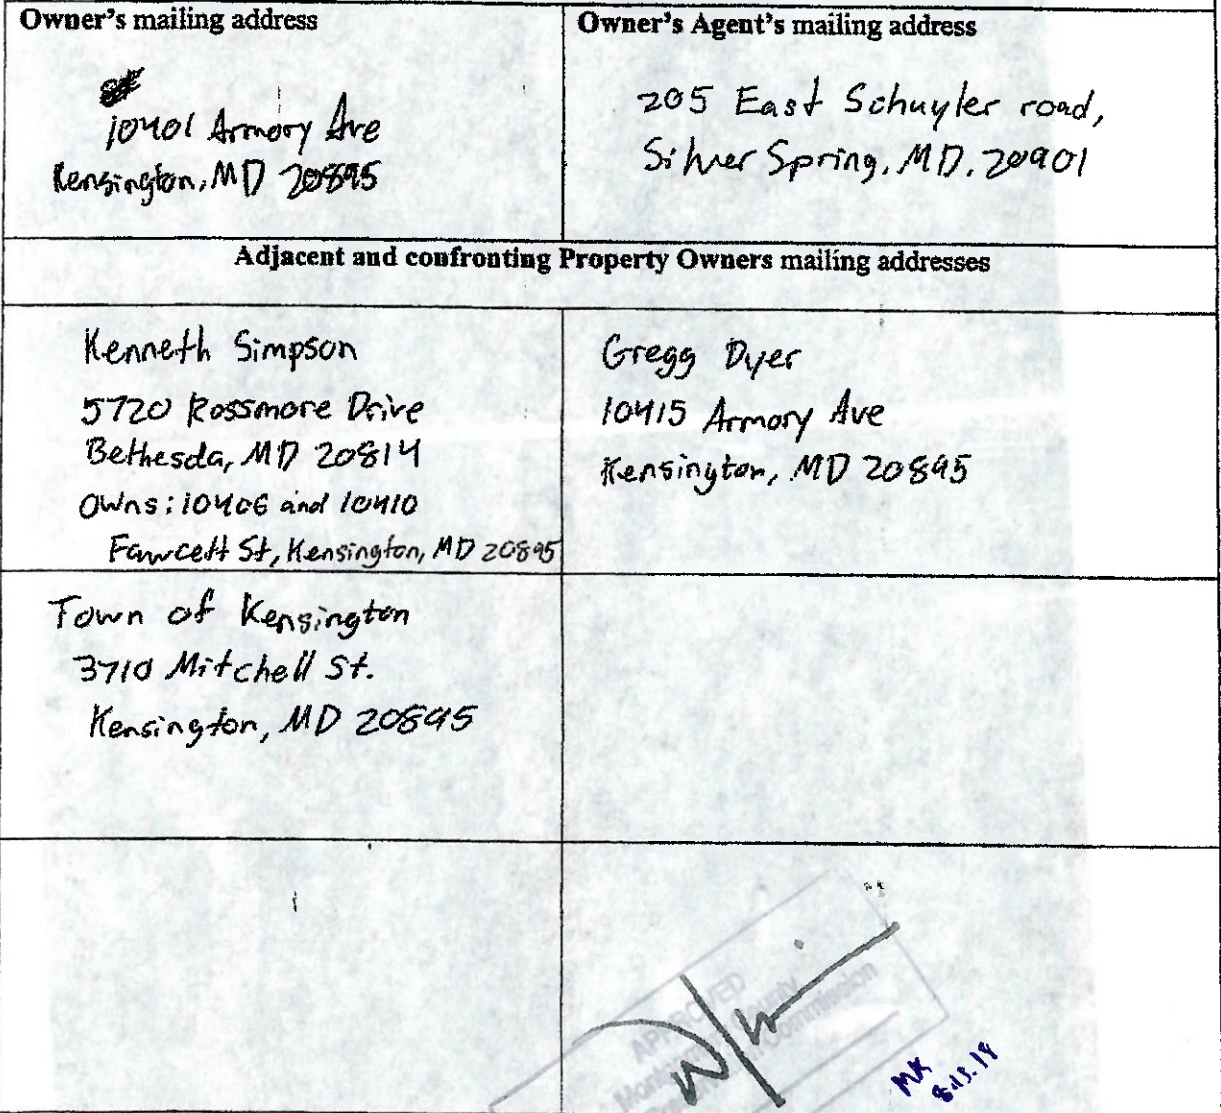 Owner's mailing address
10401 Armory Ave
Kensington, MD 20895
Owner's Agent's mailing address
205 East Schuyler road,
Silver Spring, MD. 20901
Adjacent and confronting Property Owners mailing addresses
Kenneth Simpson
5720 Rossmore Drive
Bethesda, MD 20814
Owns: 10406 and 10410
Fawcett St, Kensington, MD 20895
Gregg Dyer
10415 Armory Ave
Kensington, MD 20895
Town of Kensington
3710 Mitchell St.
Kensington, MD 20895
APPROVED
County
Commission
MK